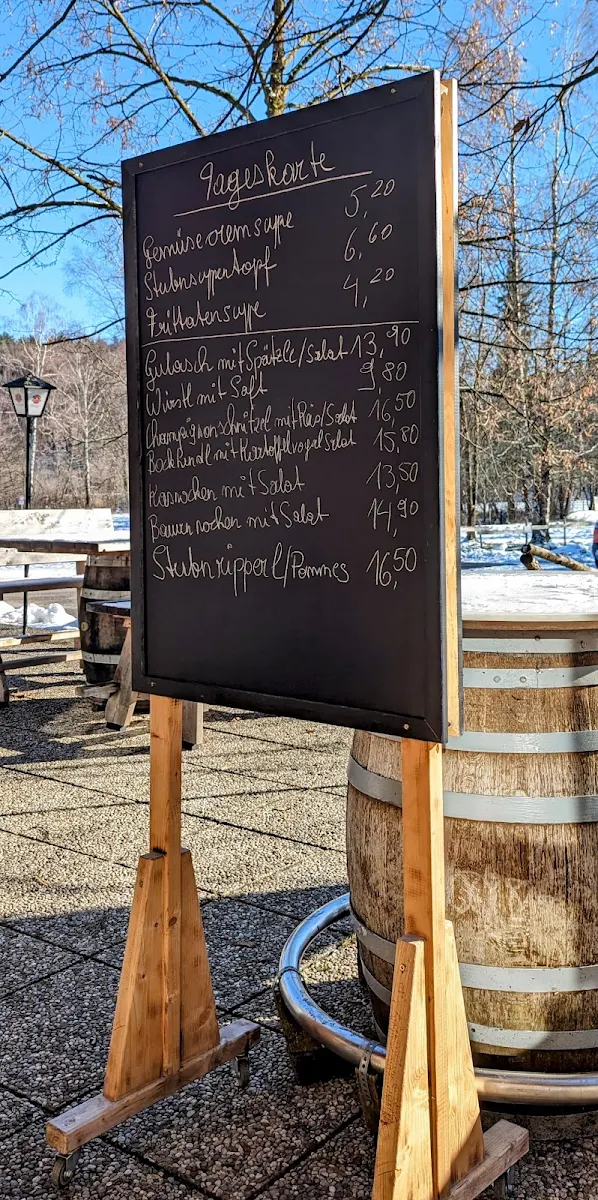 Tageskarte
Gemüsecremsuppe 5,20
Stubnsuppentopf 6,60
Frittatensuppe 4,20
Gulasch mit Spätzle/Salat 13,90
Würstl mit Saft 9,80
Champignonschnitzel mit Reis/Salat 16,50
Backhendl mit Kartoffelvogelsalat 15,80
Kasnocken mit Salat 13,50
Bauernnocken mit Salat 14,90
Stubnripperl/Pommes 16,50